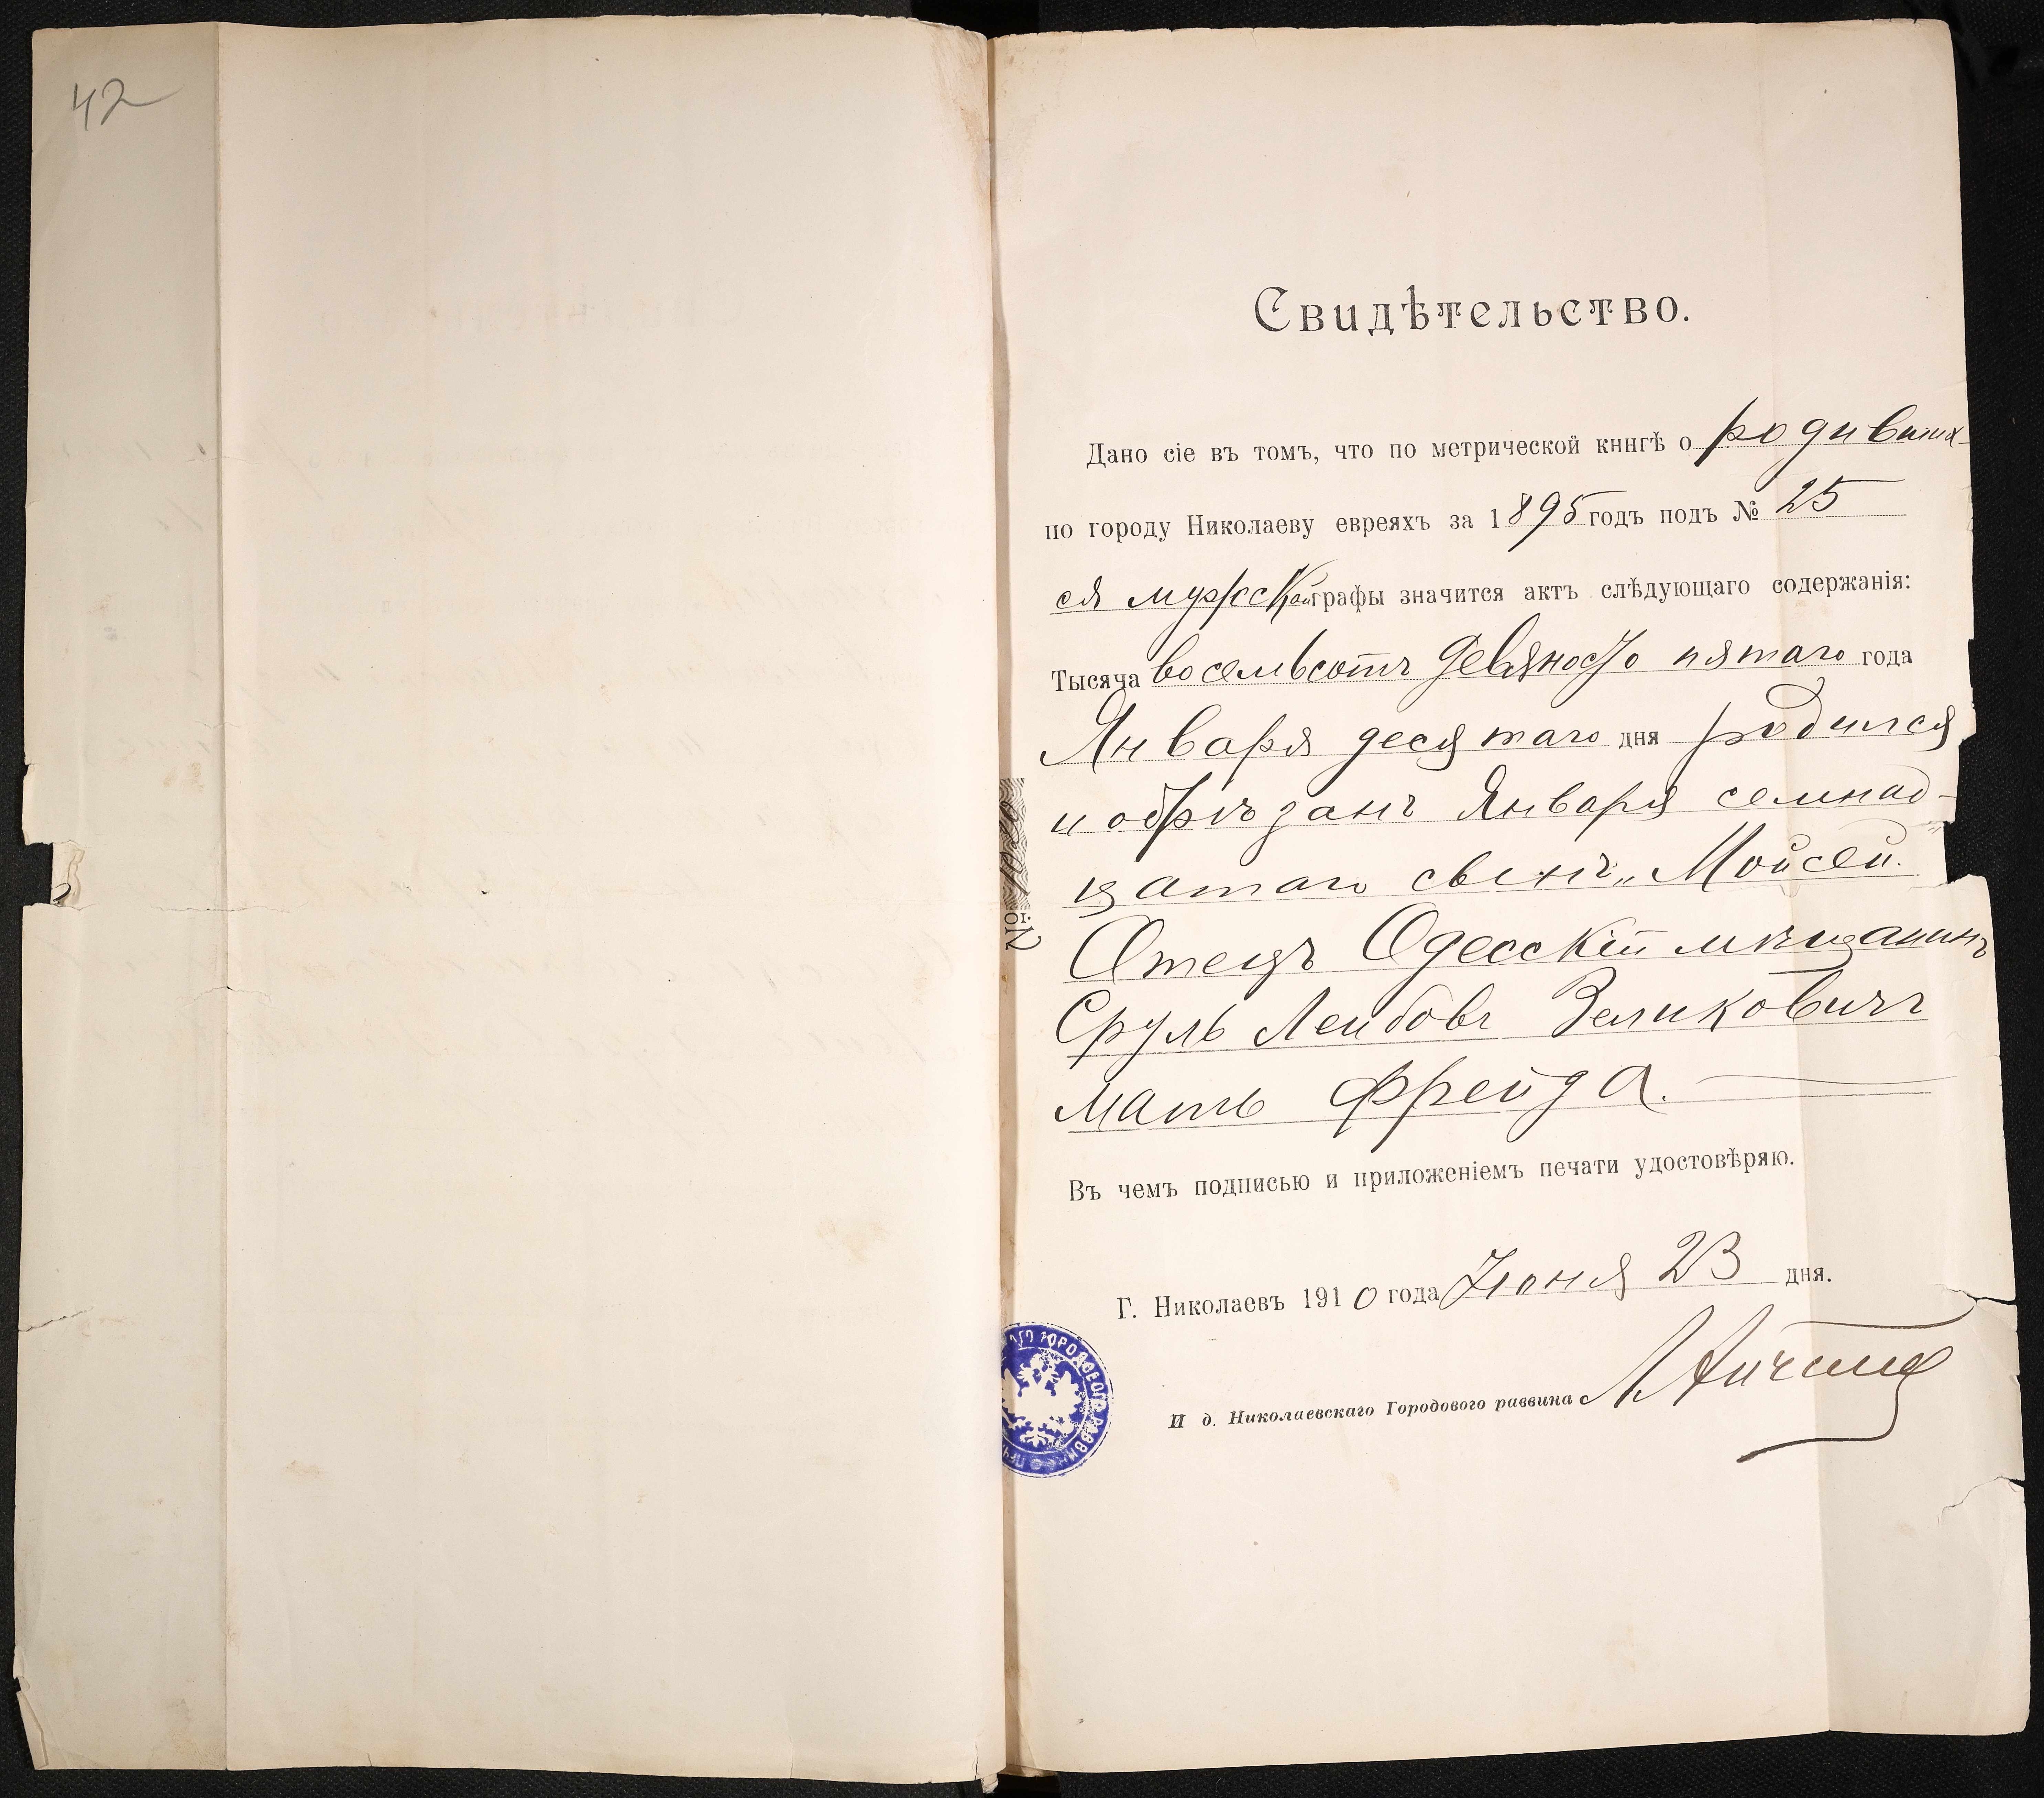 42
Свидѣтельство.
Дано сіе въ томъ, что по метрической книгѣ о родивших-
по городу Николаеву евреяхъ за 1895 годъ подъ № 25
ся мужской графы значится актъ слѣдующаго содержанія:
Тысяча восемьсотъ девяносто пятаго года
Января десятаго дня родился
и обрѣзанъ Января семнад-
цатаго сынъ „Мойсей"
Отецъ Одесскій мѣщанинъ
Сруль Лейбовъ Зеликовичъ
мать Фрейда.
Въ чемъ подписью и приложеніемъ печати удостовѣряю.
Г. Николаевъ 1910 года Іюня 23 дня.
И д. Николаевскаго Городового раввина
№ 1020
АГО ГОРОДОВОГО РАВВИНА